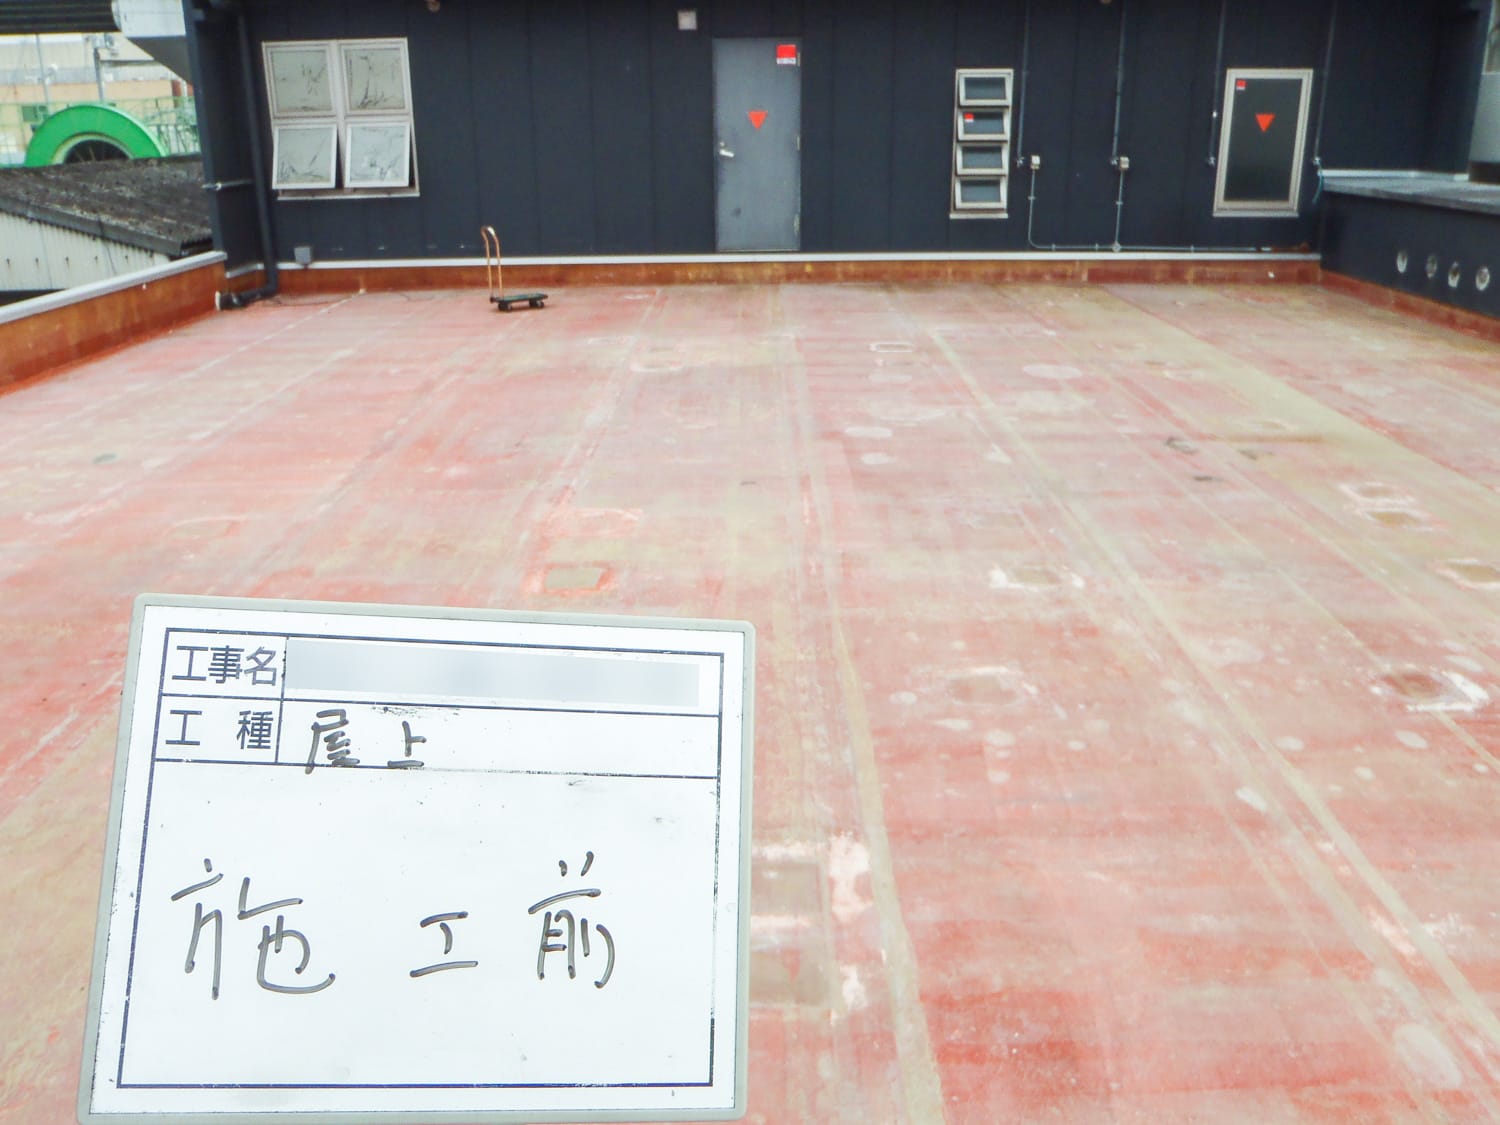 工事名
工種 屋上
施工前